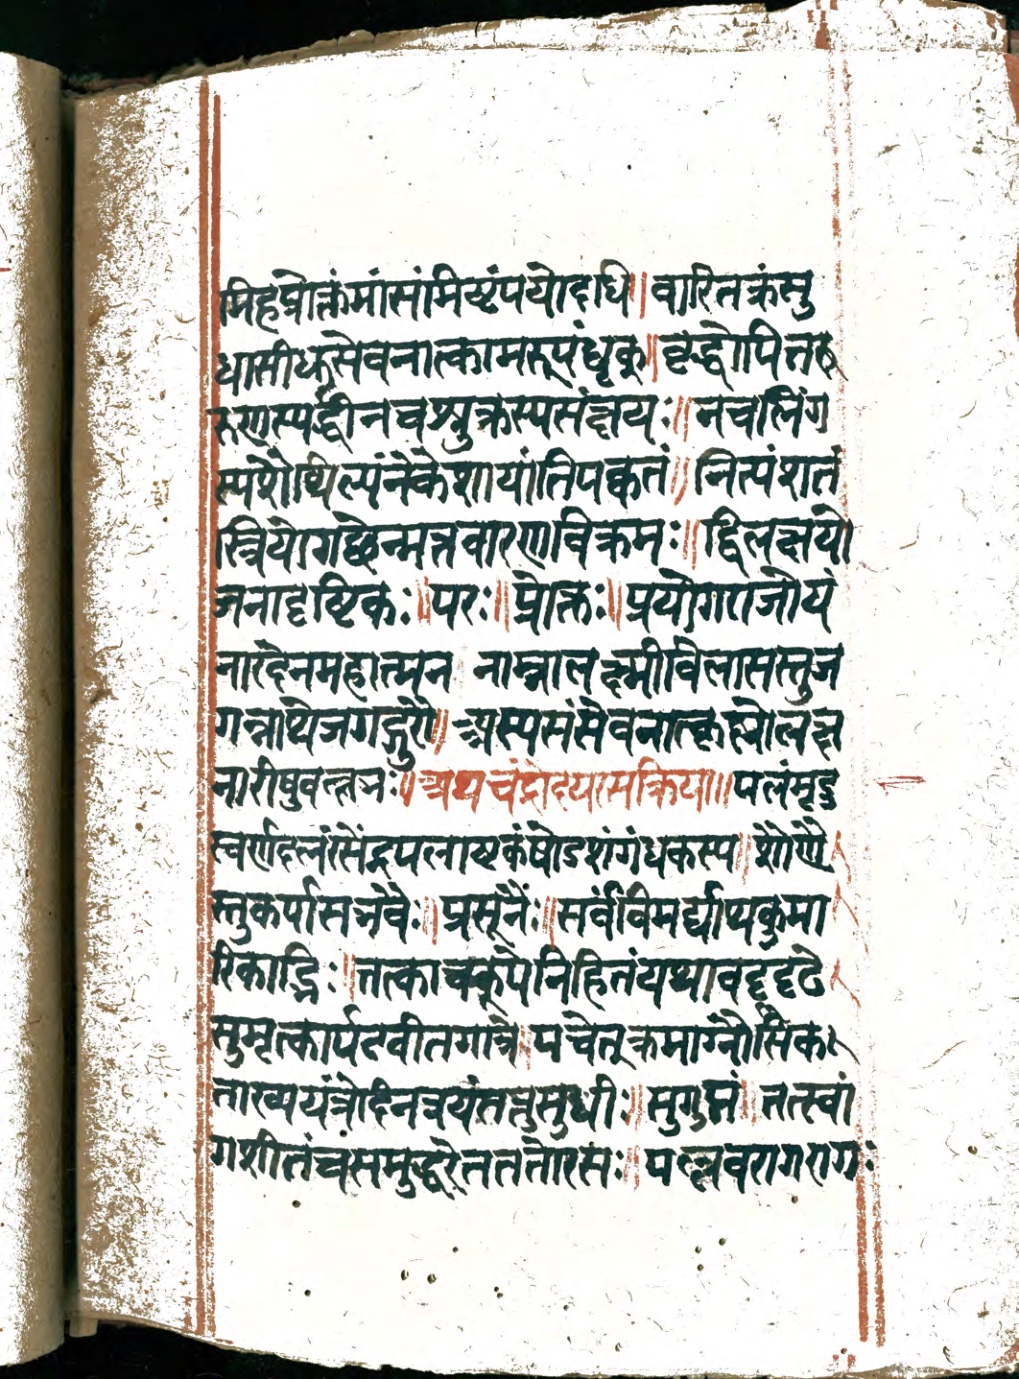 मिहप्रोक्तंमांसंमिष्टंपयोदधि॥वारितक्रंसु
धासीधुसेवनात्कामरूपधृक्॥वृद्धोपितरु
रुणस्पर्द्धीनचशुक्रस्यसंक्षयः॥नचलिंग
स्यशैथिल्यंनकेशायांतिपक्वतं॥नित्यंशतं
स्त्रियोगच्छेन्मत्तवारणविक्रमः॥द्विलक्षयो
जनादृष्टिकः॥परः॥प्रोक्तः॥प्रयोगराजोयं
नारदेनमहात्मन नाम्नालक्ष्मीविलासस्तुज
गन्नाथेजगद्गुरौ॥अस्यसंसेवनात्कृष्णोलक्ष
नारीषुवल्लभः॥अथचंद्रोदयरसक्रिया॥पलंमृदु
स्वर्णदलंरसेंद्रपलाष्टकंषोडशंगंधकस्य॥शोणै
स्तुकर्पासभवैः॥प्रसूनैः॥सर्वंविमर्द्याथकुमा
रिकाद्भिः॥तत्काचकूपेनिहितंयथावदृदृढे
सुमृत्कार्पटवीतगात्रे॥पचेत्क्रमाग्नौसिक
ताख्ययंत्रेदिनत्रयंतत्तुसुधीः॥सुगुप्तं॥तत्स्वां
गशीतंचसमुद्धरेतततोरसः॥पल्लवरागरागः